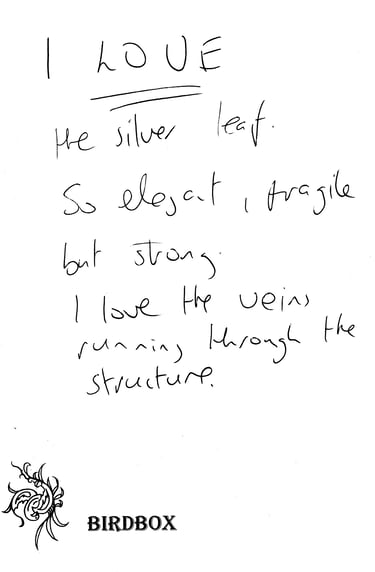 I LOVE
the silver leaf.
So elegant, fragile
but strong.
I love the veins
running through the
structure.
BIRDBOX